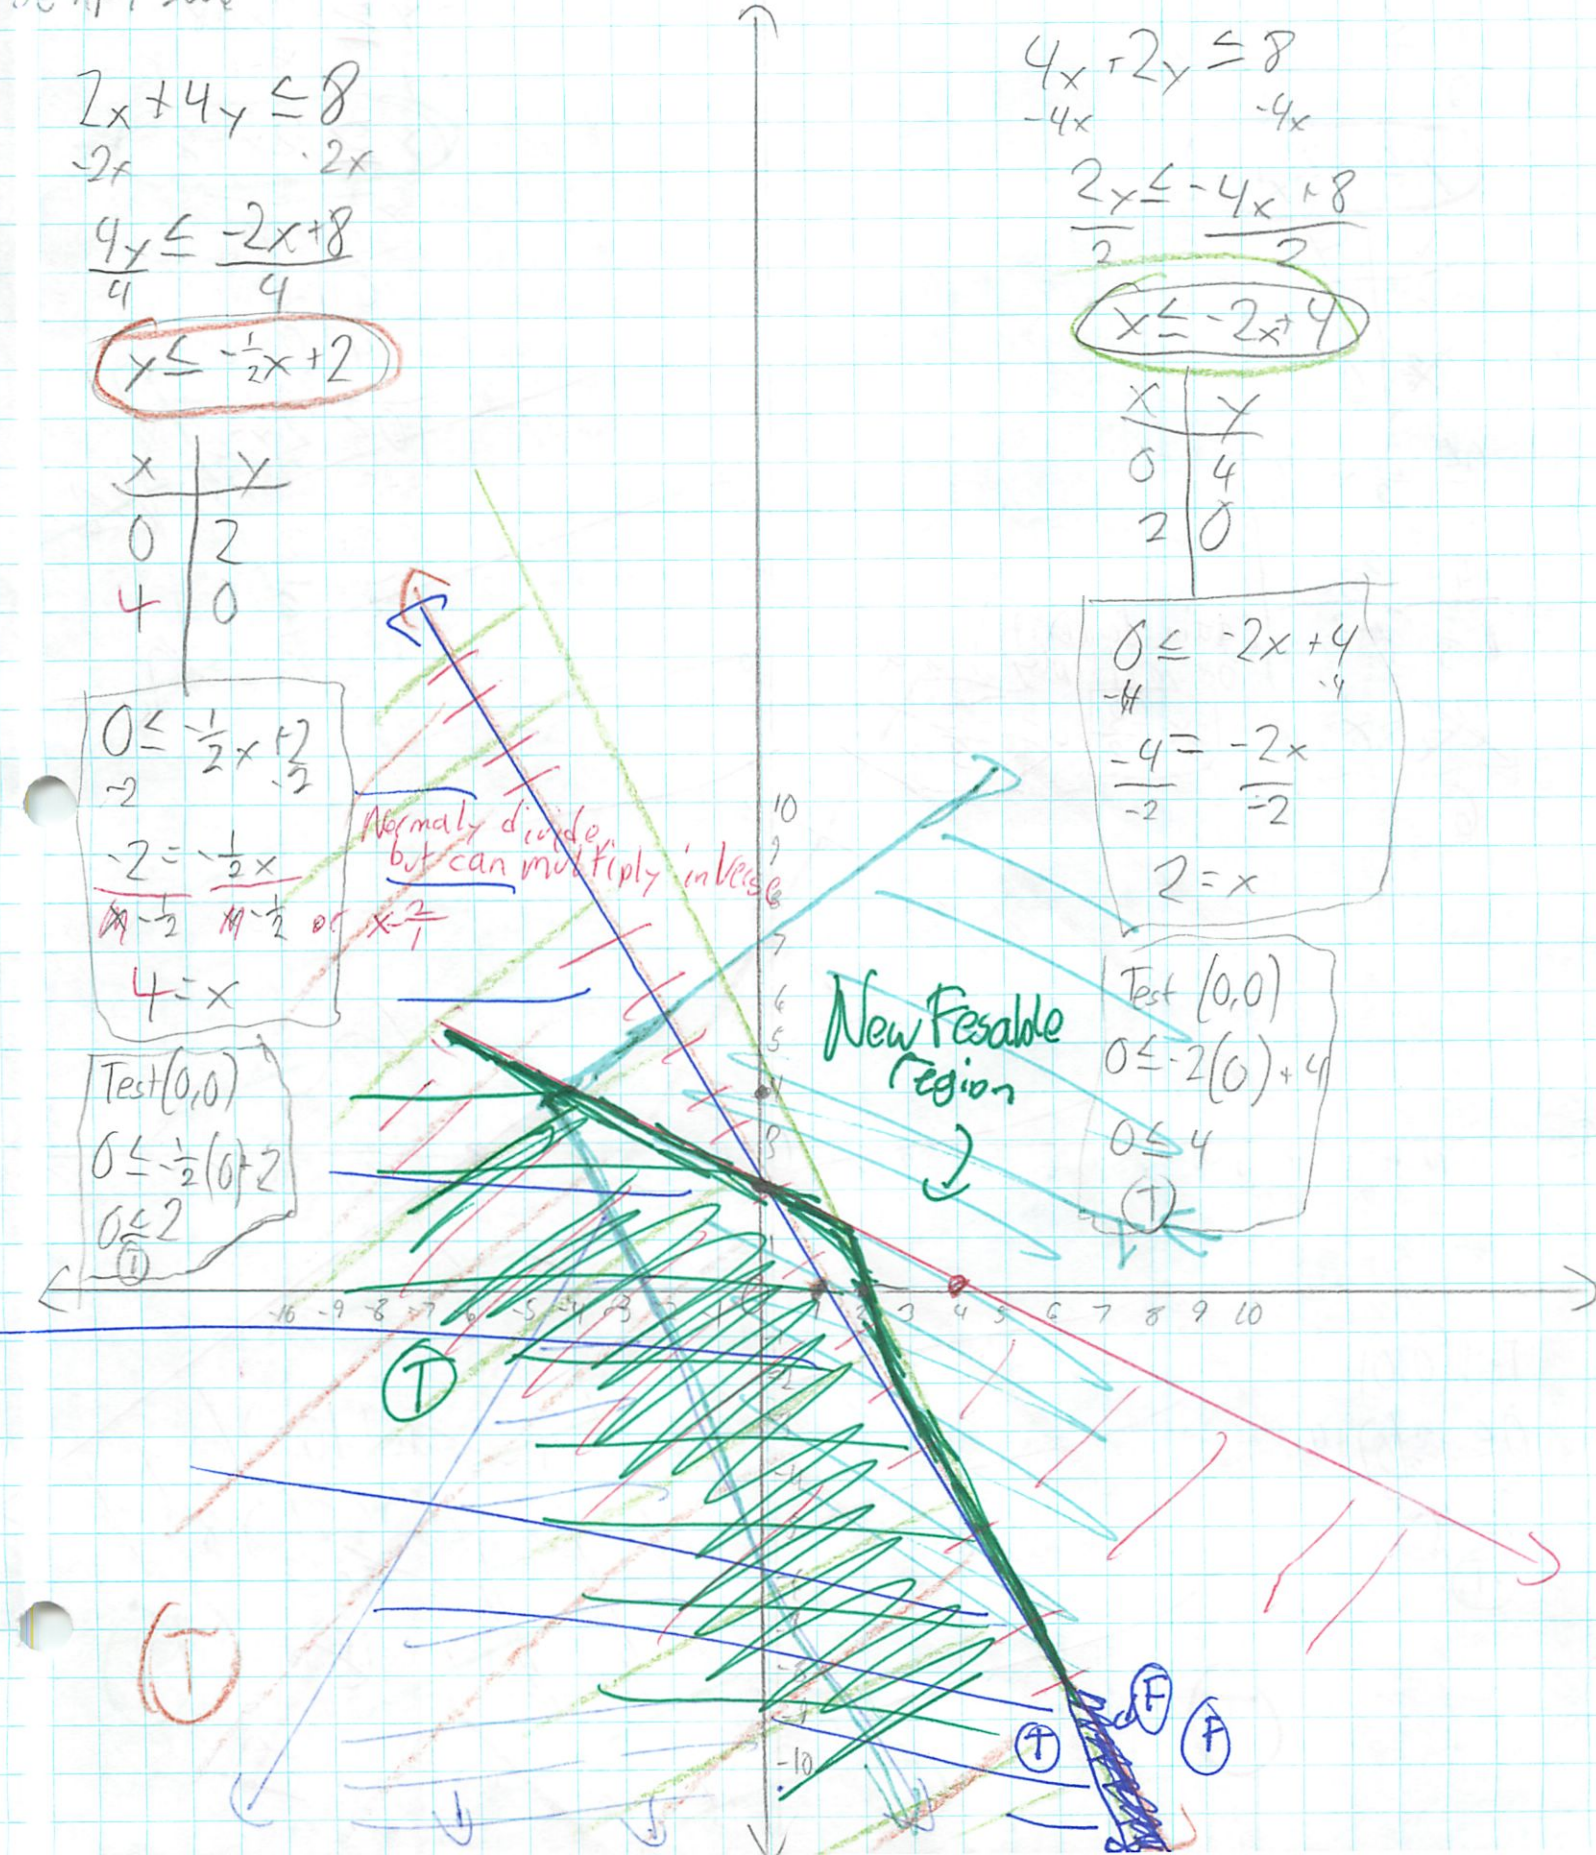 2x + 4y ≤ 8
-2x -2x
4y ≤ -2x+8
4 4
y ≤ -1/2x + 2
x y
0 2
4 0
0 ≤ -1/2x +2
-2 -2
-2 = -1/2x
-1/2 -1/2 or x-2/1
4 = x
Normaly divide,
but can multiply inverse
Test(0,0)
0 ≤ -1/2(0)+2
0 ≤ 2
T
4x + 2y ≤ 8
-4x -4x
2y ≤ -4x +8
2 2
x ≤ -2x+4
x y
0 4
2 0
0 ≤ -2x +4
-4 -4
-4 = -2x
-2 -2
2 = x
Test (0,0)
0 ≤ -2(0)+4
0 ≤ 4
T
New Fesable
region
10
9
8
7
6
5
4
3
1
-10 -9 -8 -7 -6 -5 -4 -3 -2 -1 1 2 3 4 5 6 7 8 9 10
-2
-4
-9
-10
T
T
T
F
F